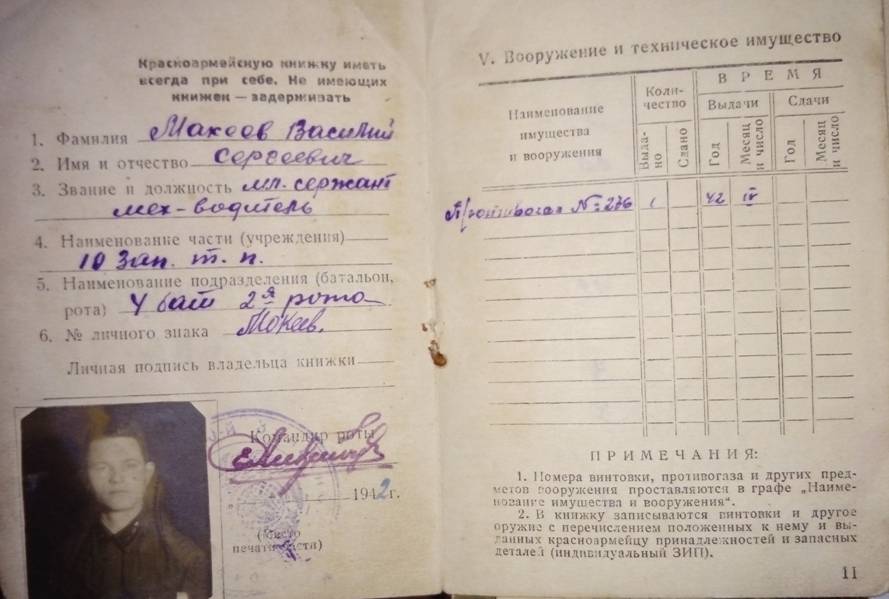 Красноармейскую книжку иметь
всегда при себе. Не имеющих
книжек — задерживать
1. Фамилия Макеев Василий
2. Имя и отчество Сергеевич
3. Звание и должность мл. сержант
мех-водитель
4. Наименование части (учреждения)
10 Зап. т. п.
5. Наименование подразделения (батальон,
рота) 4 бат 2я рота
6. № личного знака Мокеев.
Личная подпись владельца книжки
Командир роты
1942 г.
(Место
печати части)
V. Вооружение и техническое имущество
Наименование
имущества
и вооружения
Коли-
чество
ВРЕМЯ
Выдачи
Сдачи
Выда-
но
Сдано
Год
Месяц
и число
Год
Месяц
и число
Противогаз №276 1 42 IV
ПРИМЕЧАНИЯ:
1. Номера винтовки, противогаза и других пред-
метов вооружения проставляются в графе „Наиме-
нование имущества и вооружения“.
2. В книжку записываются винтовки и другое
оружие с перечислением положенных к нему и вы-
данных красноармейцу принадлежностей и запасных
деталей (индивидуальный ЗИП).
11